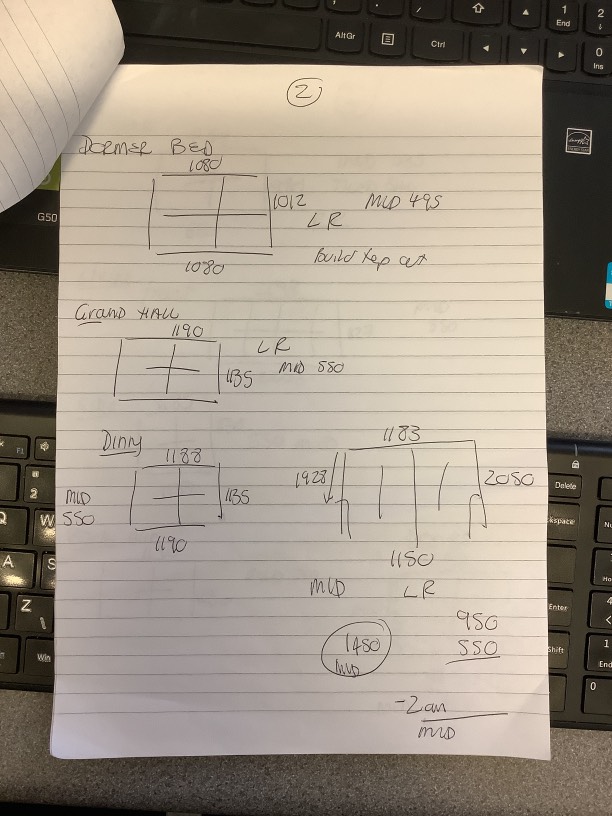 2
DORMER BED
1080
1012
MID 495
LR
Build top out
1080
Grand HALL
1190
LR
1135
MID 550
Dinny
1188
MID
550
1135
1190
1183
1928
2050
1150
MID LR
1450
MID
950
550
-2cm
MID
AltGr
Ctrl
1
End
2
0
Ins
G50
F1
2
Q
W
A
S
Z
Win
Delete
Enter
Shift
0